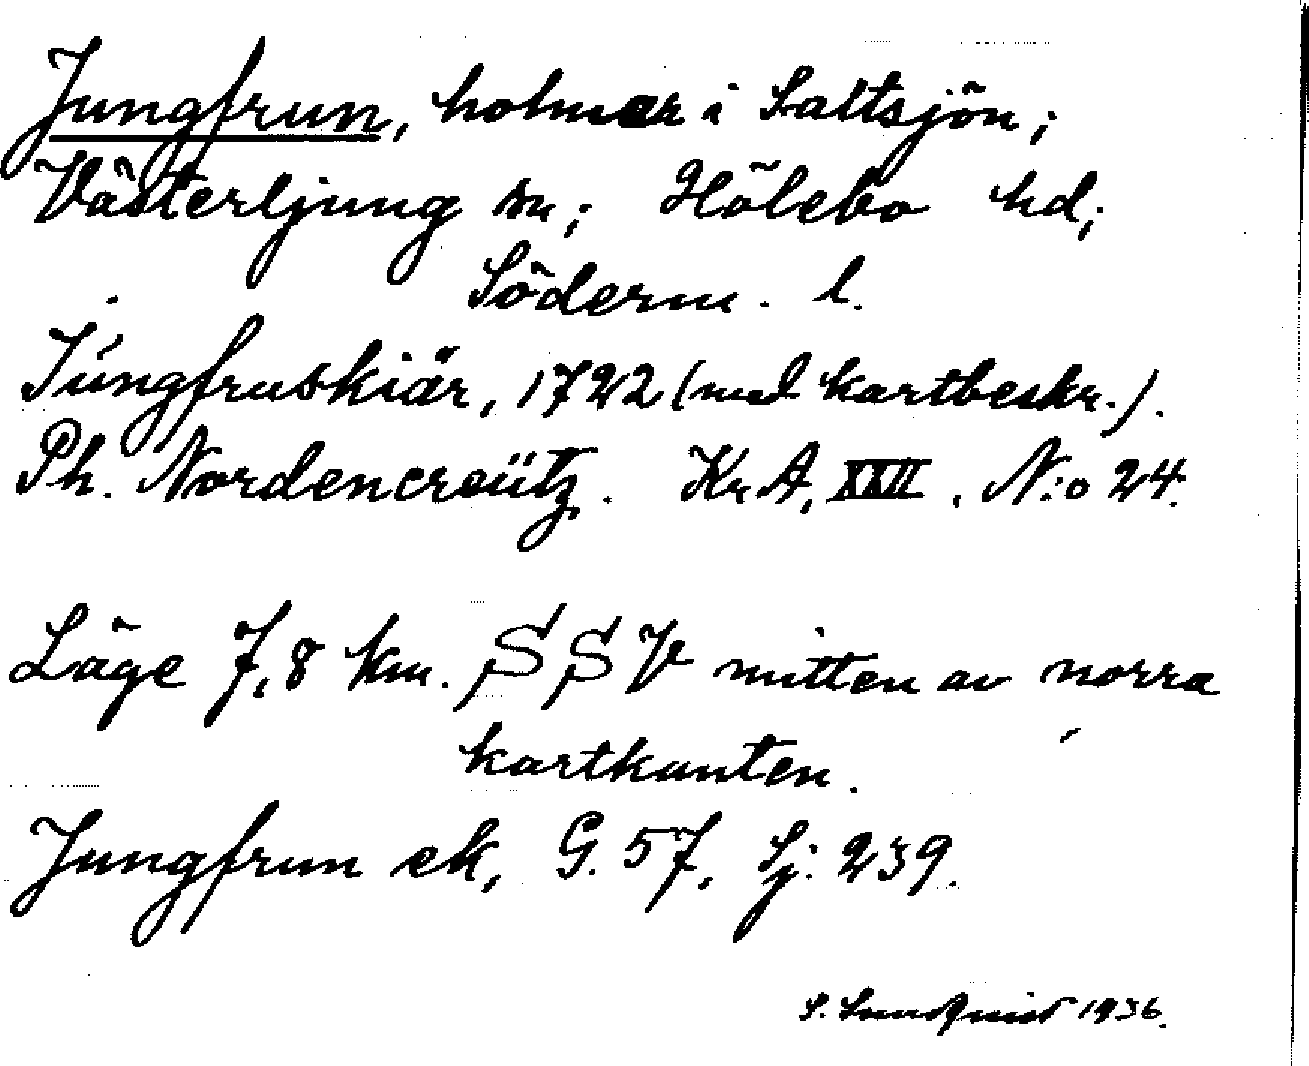 Jungfrun, holmar i Saltsjön;
Västerljung sn; Hölebo hd;
Söderm. l.
Jungfruskiär, 1722 (med kartbeskr.).
Ph. Nordencreütz. Kr. A, XXII, N:o 24.
Läge 7,8 km. SSV mitten av norra
kartkanten.
Jungfrun ek, G. 57, Sj: 239.
S. Lundquist 1936.